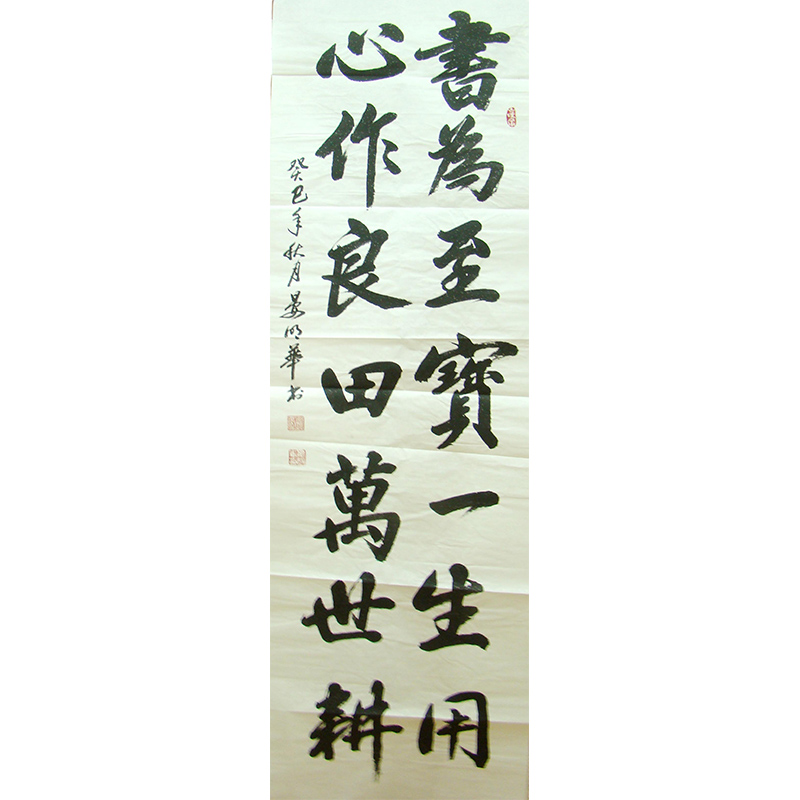 書為至寶一生用
心作良田萬世耕
癸巳年秋月晏明華書